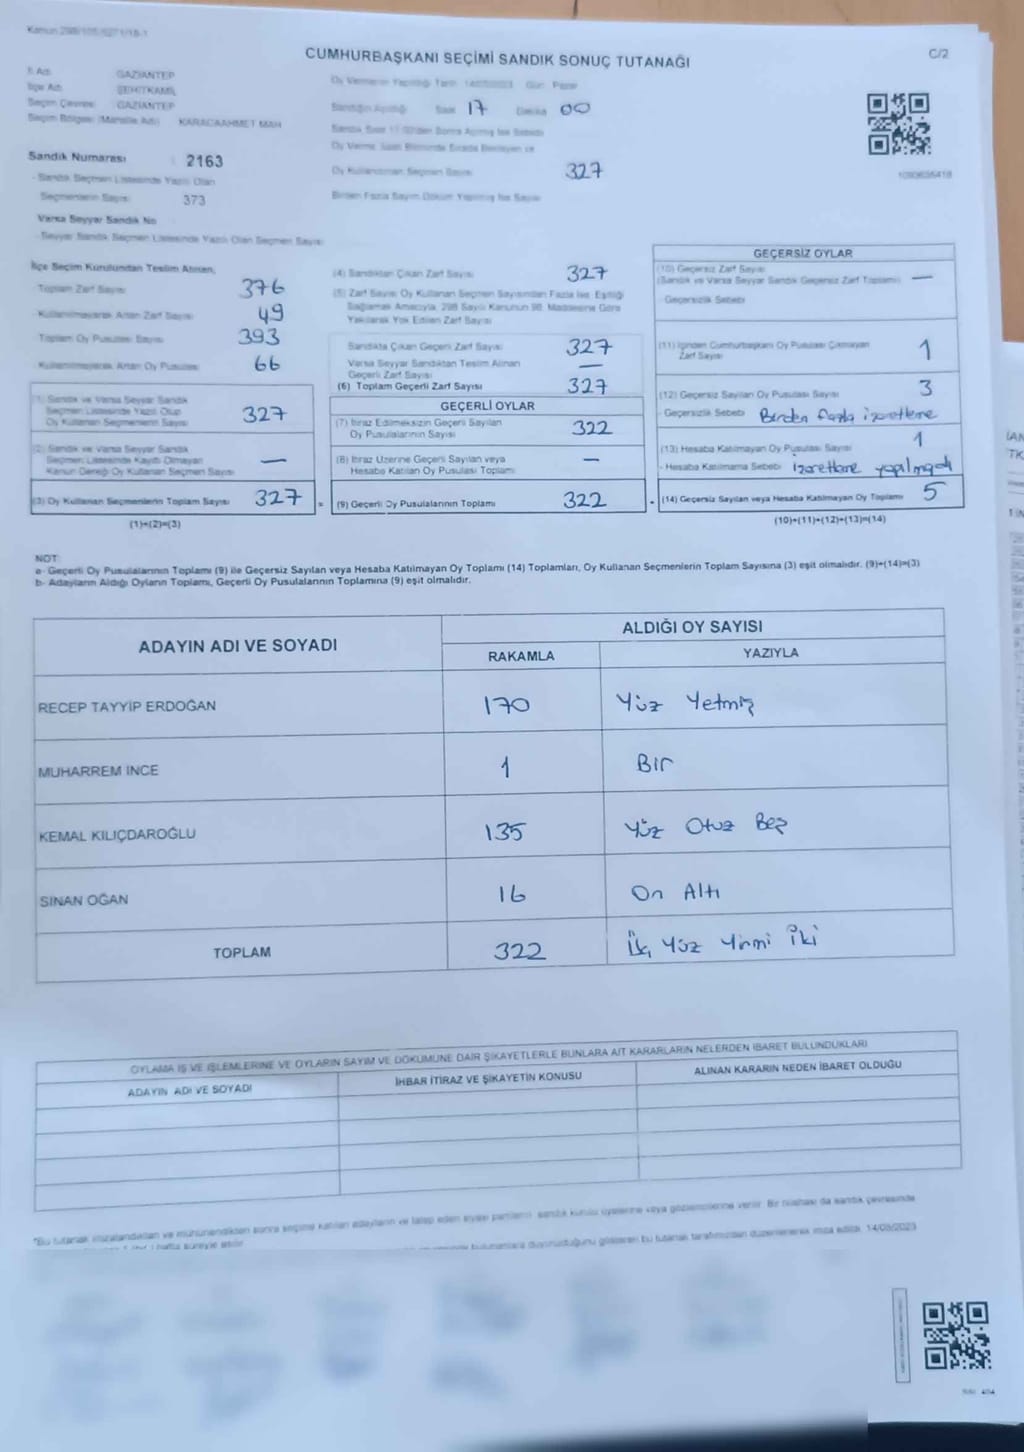 Kanun 298/105
CUMHURBAŞKANI SEÇİMİ SANDIK SONUÇ TUTANAĞI
C/2
İl Adı GAZİANTEP
İlçe Adı ŞEHİTKAMİL
Seçim Çevresi GAZİANTEP
Seçim Bölgesi (Mahalle Adı) KARACAAHMET MAH
Sandık Numarası : 2163
- Sandık Seçmen Listesinde Yazılı Olan
Seçmenlerin Sayısı 373
Varsa Seyyar Sandık No
- Seyyar Sandık Seçmen Listesinde Yazılı Olan Seçmen Sayısı
Oy Vermenin Yapıldığı Tarih 14/05/2023 Gün Pazar
Sandığın Açıldığı Saat 17 Dakika 00
Sandık Saat 17.00'den Sonra Açılmış İse Sebebi
Oy Verme Saati Bitiminde Sırada Bekleyen ve
Oy Kullandırılan Seçmen Sayısı 327
Birden Fazla Sayım Döküm Yapılmış İse Sayısı
1090635418
İlçe Seçim Kurulundan Teslim Alınan,
Toplam Zarf Sayısı 376
- Kullanılmayarak Artan Zarf Sayısı 49
Toplam Oy Pusulası Sayısı 393
- Kullanılmayarak Artan Oy Pusulası 66
(1) Sandık ve Varsa Seyyar Sandık
Seçmen Listesinde Yazılı Olup
Oy Kullanan Seçmenlerin Sayısı 327
(2) Sandık ve Varsa Seyyar Sandık
Seçmen Listesinde Kayıtlı Olmayan
Kanun Gereği Oy Kullanan Seçmen Sayısı —
(3) Oy Kullanan Seçmenlerin Toplam Sayısı 327 =
(1)+(2)=(3)
(4) Sandıktan Çıkan Zarf Sayısı 327
(5) Zarf Sayısı Oy Kullanan Seçmen Sayısından Fazla İse, Eşitliği
Sağlamak Amacıyla, 298 Sayılı Kanunun 98. Maddesine Göre
Yakılarak Yok Edilen Zarf Sayısı
Sandıkta Çıkan Geçerli Zarf Sayısı 327
Varsa Seyyar Sandıktan Teslim Alınan
Geçerli Zarf Sayısı —
(6) Toplam Geçerli Zarf Sayısı 327
GEÇERLİ OYLAR
(7) İtiraz Edilmeksizin Geçerli Sayılan
Oy Pusulalarının Sayısı 322
(8) İtiraz Üzerine Geçerli Sayılan veya
Hesaba Katılan Oy Pusulası Toplamı —
(9) Geçerli Oy Pusulalarının Toplamı 322
GEÇERSİZ OYLAR
(10) Geçersiz Zarf Sayısı
(Sandık ve Varsa Seyyar Sandık Geçersiz Zarf Toplamı) —
- Geçersizlik Sebebi
(11) İçinden Cumhurbaşkanı Oy Pusulası Çıkmayan
Zarf Sayısı 1
(12) Geçersiz Sayılan Oy Pusulası Sayısı 3
- Geçersizlik Sebebi Birden fazla izaretleme
(13) Hesaba Katılmayan Oy Pusulası Sayısı 1
- Hesaba Katılmama Sebebi İzaretleme yapılmadı
(14) Geçersiz Sayılan veya Hesaba Katılmayan Oy Toplamı 5
(10)+(11)+(12)+(13)=(14)
NOT:
a- Geçerli Oy Pusulalarının Toplamı (9) ile Geçersiz Sayılan veya Hesaba Katılmayan Oy Toplamı (14) Toplamları, Oy Kullanan Seçmenlerin Toplam Sayısına (3) eşit olmalıdır. (9)+(14)=(3)
b- Adayların Aldığı Oyların Toplamı, Geçerli Oy Pusulalarının Toplamına (9) eşit olmalıdır.
ADAYIN ADI VE SOYADI
ALDIĞI OY SAYISI
RAKAMLA YAZIYLA
RECEP TAYYİP ERDOĞAN 170 Yüz Yetmiş
MUHARREM İNCE 1 Bir
KEMAL KILIÇDAROĞLU 135 Yüz Otuz Beş
SİNAN OĞAN 16 On Altı
TOPLAM 322 Üç Yüz Yirmi İki
OYLAMA İŞ VE İŞLEMLERİNE VE OYLARIN SAYIM VE DÖKÜMÜNE DAİR ŞİKAYETLERLE BUNLARA AİT KARARLARIN NELERDEN İBARET BULUNDUKLARI
ADAYIN ADI VE SOYADI İHBAR İTİRAZ VE ŞİKAYETİN KONUSU ALINAN KARARIN NEDEN İBARET OLDUĞU
*Bu tutanak imzalandıktan ve mühürlendikten sonra seçime katılan adayların ve talep eden siyasi partilerin sandık kurulu üyelerine veya gözlemcilerine verilir. Bir nüshası da sandık çevresinde
hafta süreyle asılır.
bulunanlara duyurulduğunu gösteren bu tutanak tarafımızdan düzenlenerek imza edildi. 14/05/2023